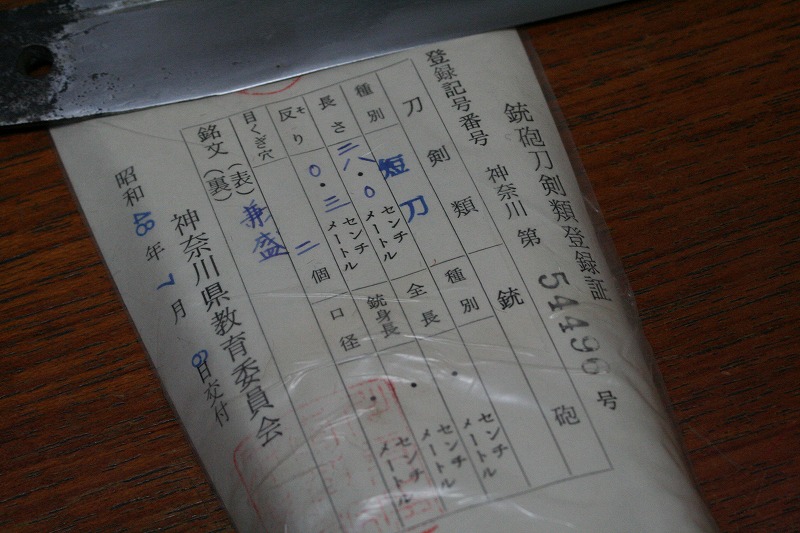 銃砲刀剣類登録証
登録記号番号 神奈川 第 54496 号
刀剣類
銃砲
種別 短刀
長さ 二八・〇 センチメートル
反り そり 〇・三 センチメートル
目くぎ穴 二 個
銘文 (表) 兼盛
(裏)
種別
全長 ・ センチメートル
銃身長 ・ センチメートル
口径 ・ センチメートル
昭和 48 年 7 月 6 日交付
神奈川県教育委員会